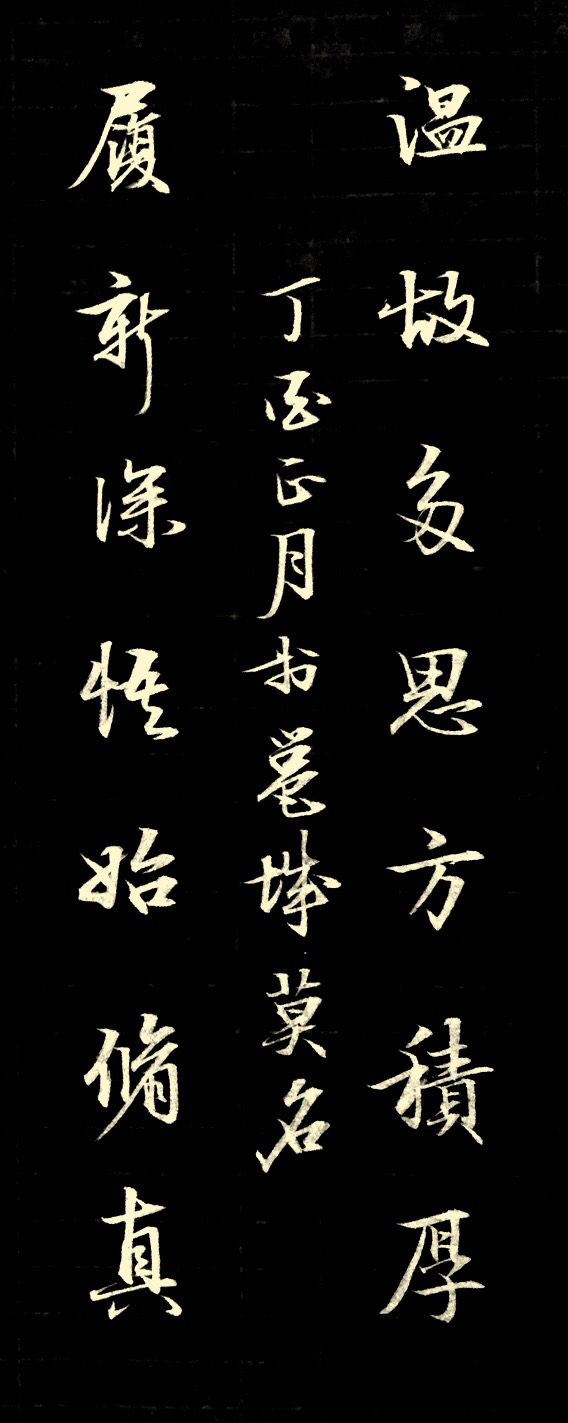 温故多思方積厚
丁酉正月书邕城莫名
履新深悟始脩真